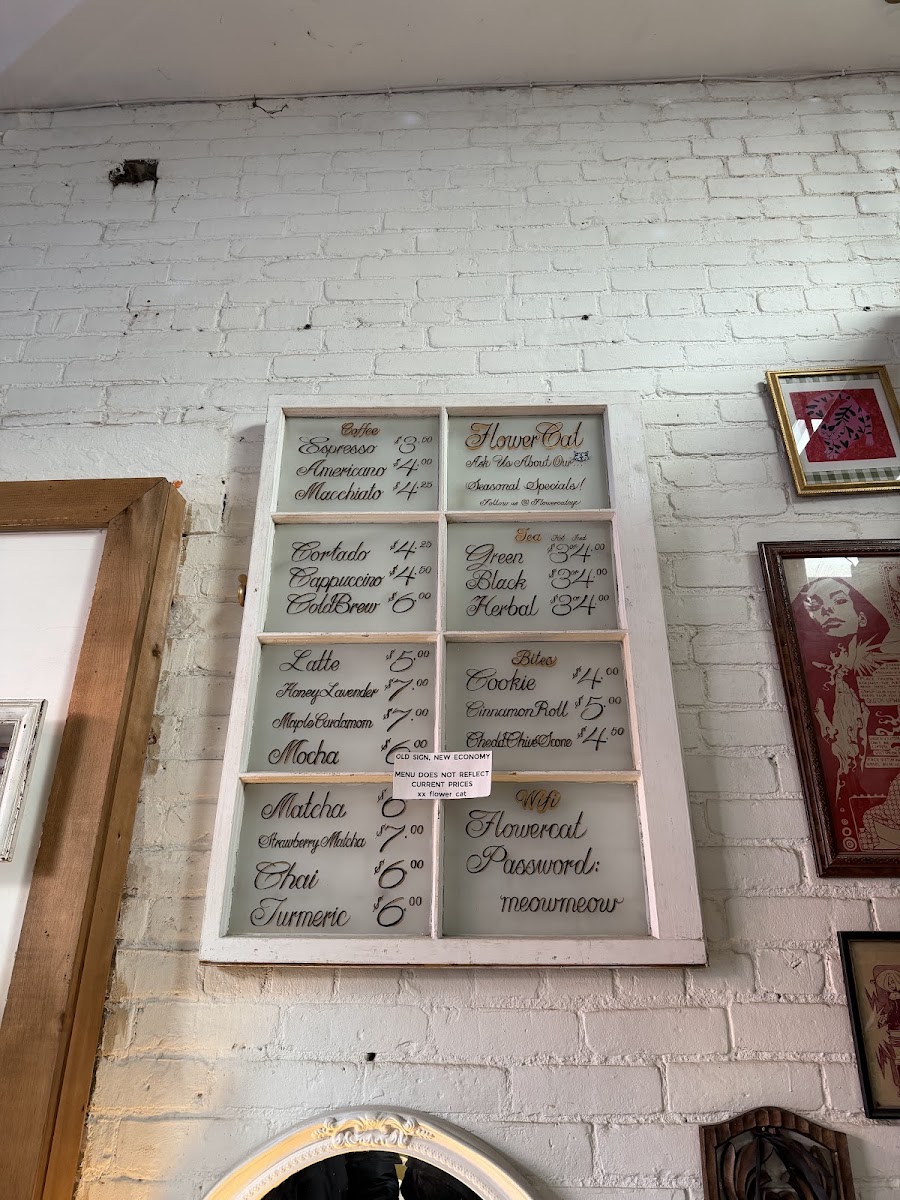 Coffee
Espresso $3.00
Americano $4.00
Macchiato $4.25
Cortado $4.25
Cappuccino $4.50
Cold Brew $6.00
Latte $5.00
Honey Lavender $7.00
Maple Cardamom $7.00
Mocha $6.00
Matcha $6
Strawberry Matcha $7.00
Chai $6.00
Turmeric $6.00
FlowerCat
Ask Us About Our
Seasonal Specials!
Follow us @Flowercatnyc
Tea Hot Iced
Green $3 or 4.00
Black $3 or 4.00
Herbal $3 or 4.00
Bites
Cookie $4.00
Cinnamon Roll $5.00
Chedd Chive Scone $4.50
OLD SIGN, NEW ECONOMY
MENU DOES NOT REFLECT
CURRENT PRICES
xx flower cat
Wifi
Flowercat
Password:
meowmeow